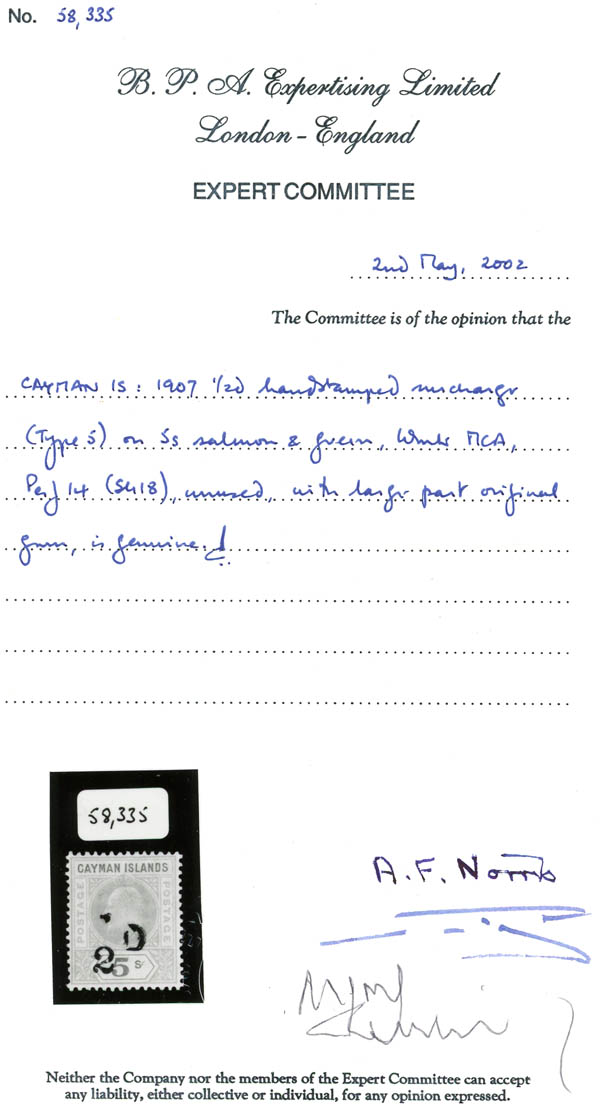 No. 58,335
B. P. A. Expertising Limited
London - England
EXPERT COMMITTEE
2nd May, 2002
The Committee is of the opinion that the
CAYMAN IS: 1907 1/2d handstamped surcharge
(Type 5) on 5s salmon & green, Wmk MCA,
Perf 14 (SG18), unused, with large part original
gum, is genuine.
58,335
CAYMAN ISLANDS
POSTAGE
POSTAGE
1 D
2 5 S/-
A. F. Norris
Neither the Company nor the members of the Expert Committee can accept
any liability, either collective or individual, for any opinion expressed.